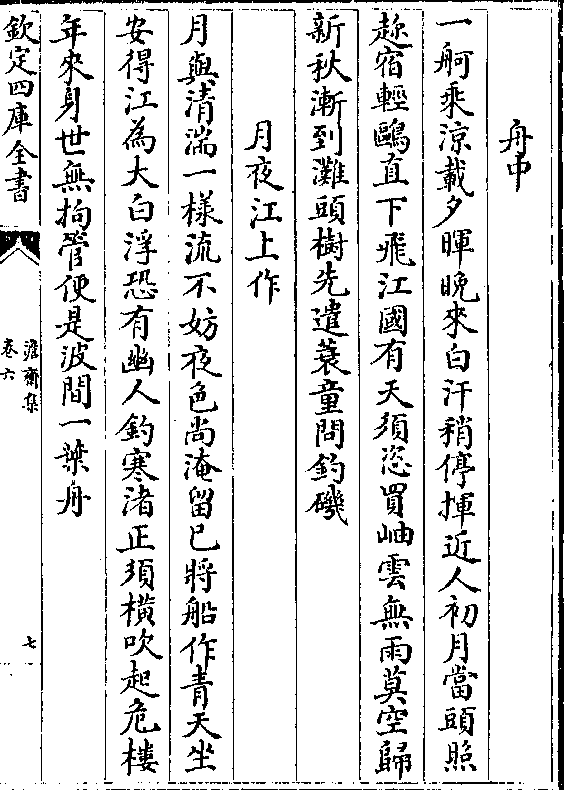 舟中
一舸乘涼載夕暉晚來白汗稍停揮近人初月當頭照
趂宿輕鷗直下飛江國有天須恣買岫雲無雨莫空歸
新秋漸到灘頭樹先遣蓑童問釣磯
月夜江上作
月與清湍一樣流不妨夜色尚淹留已將船作青天坐
安得江為大白浮恐有幽人釣寒渚正須橫吹起危樓
年來身世無拘管便是波間一葉舟
欽定四庫全書
澹齋集
卷六
七